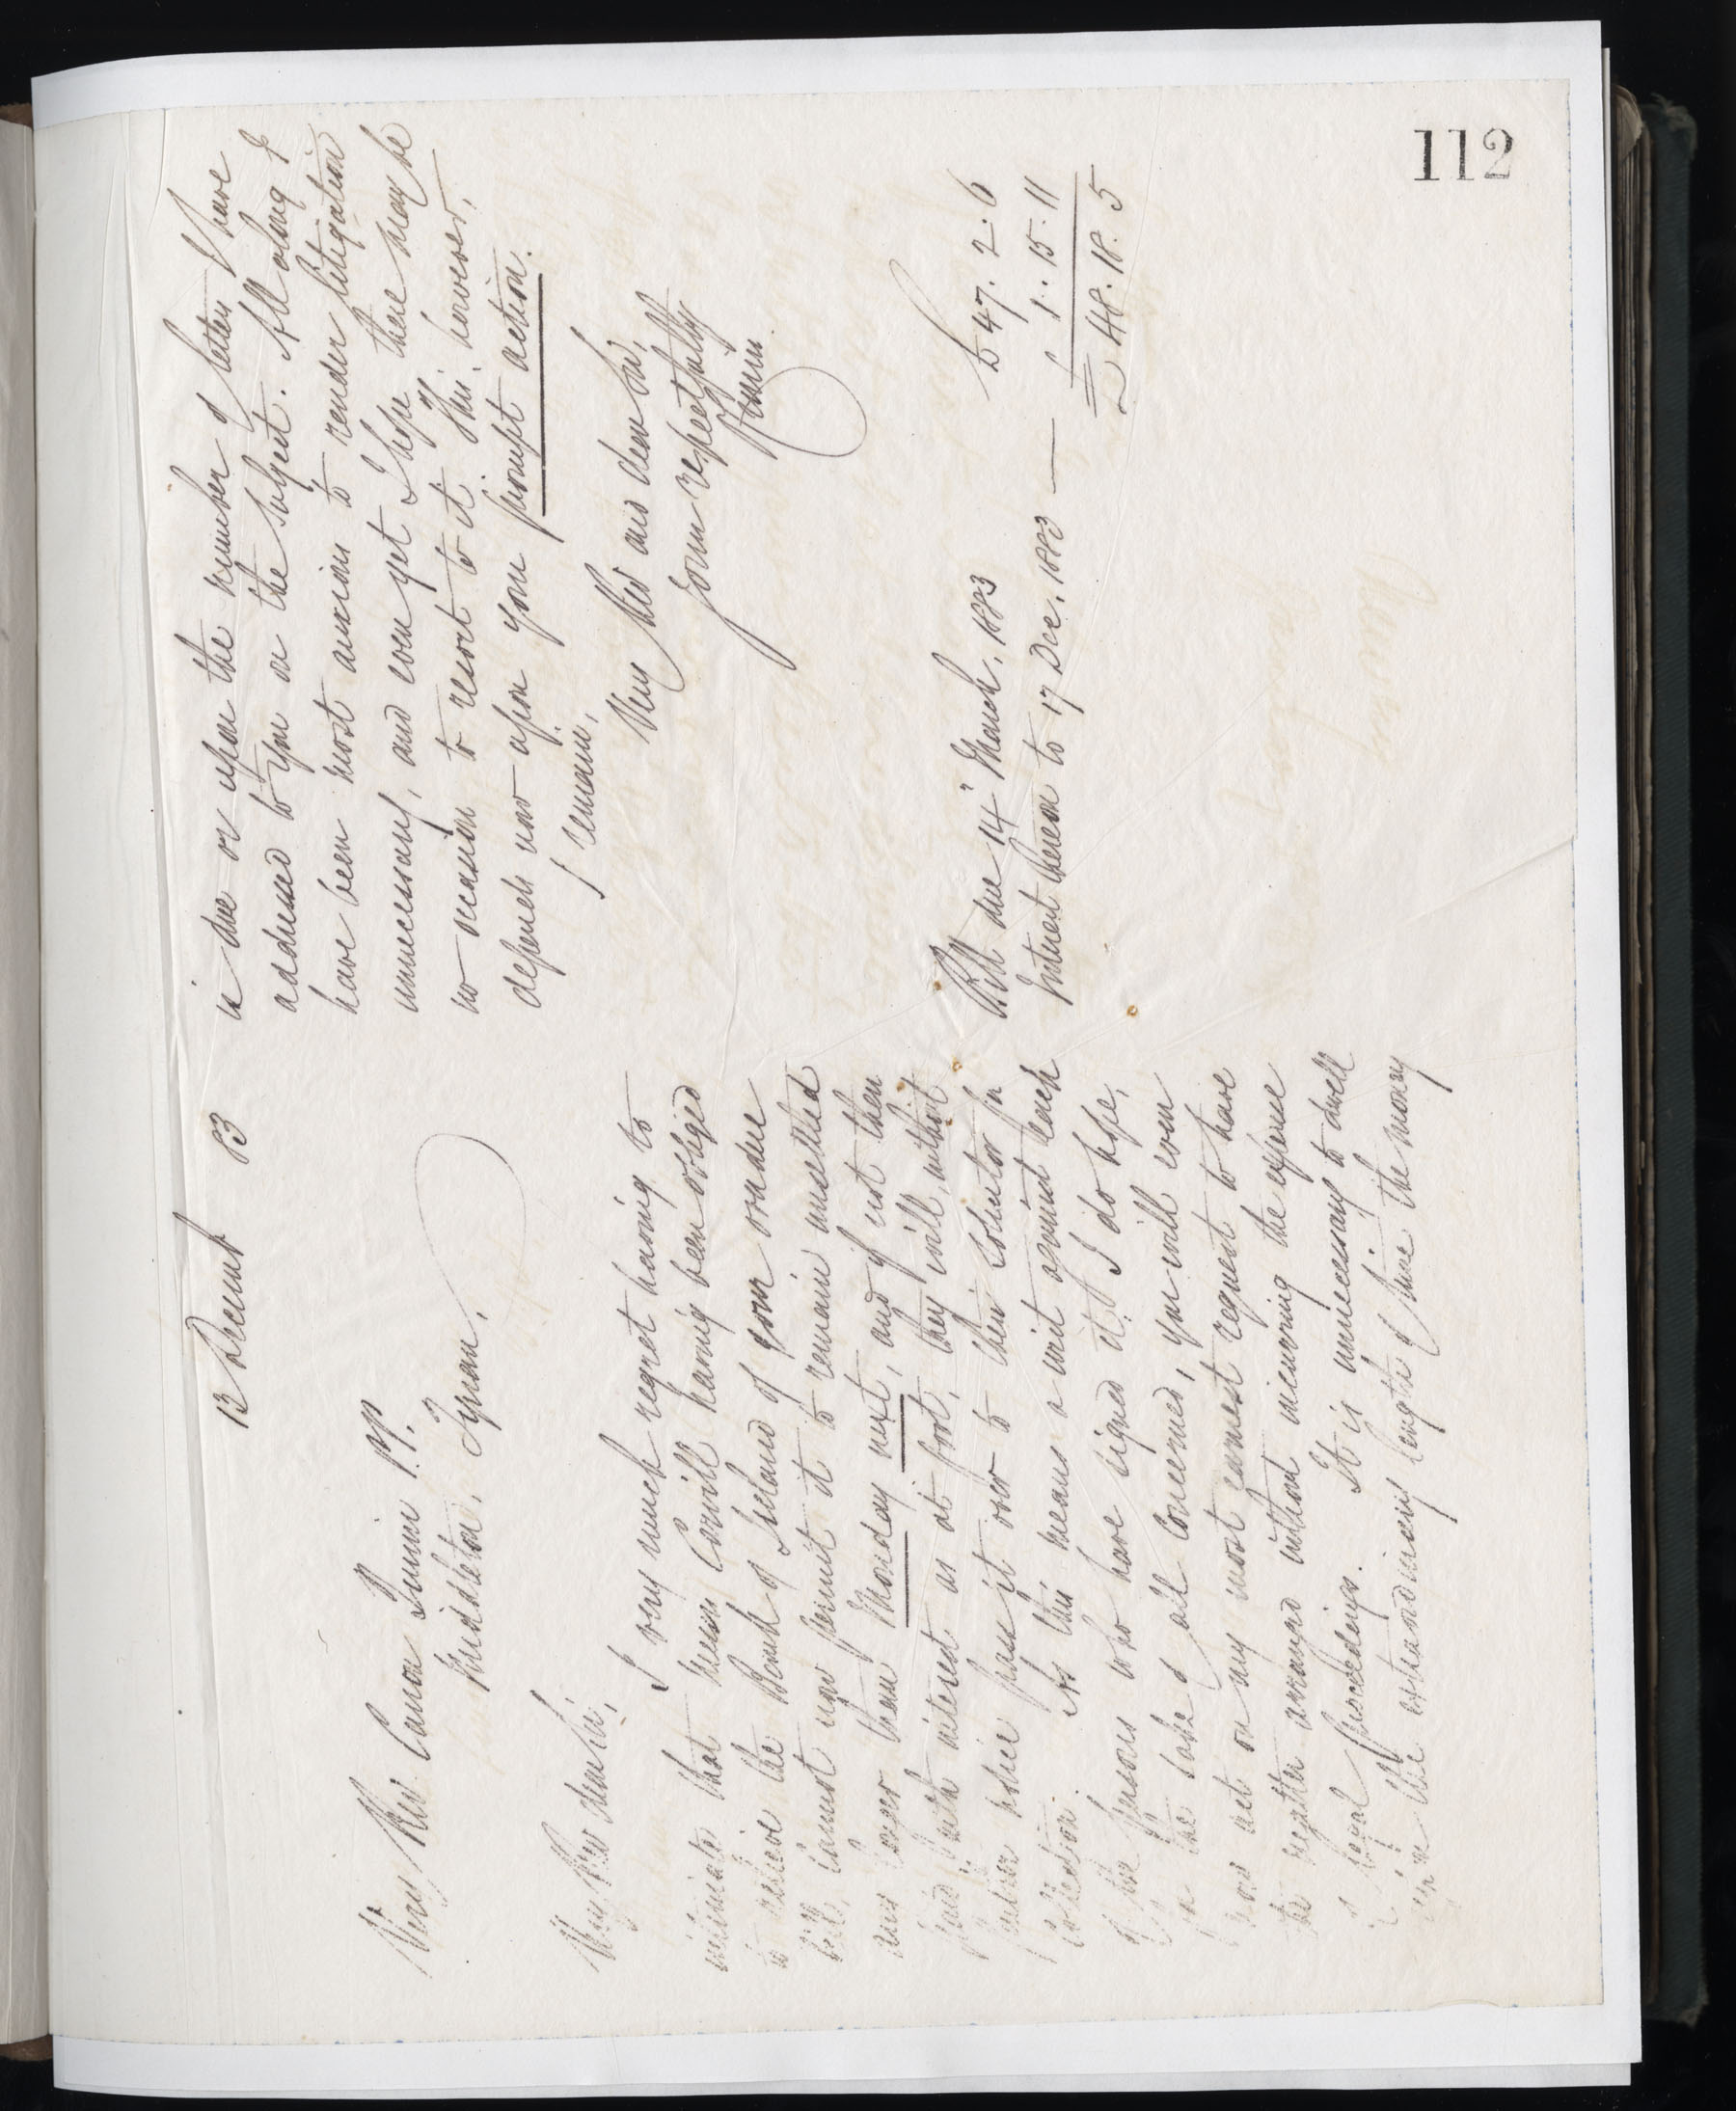 112
13 Decemb 83
Very Rev Canon Quinn P.P.
Middleton, Tynan.
Very Rev dear Sir,
I very much regret having to
intimate that Messrs having been obliged
to relieve the Bank of Ireland of your overdue
bill, cannot now permit it to remain unsettled
any longer than Monday next, and if not then
paid with interest as at foot, they will, without
further notice pass it over to their solicitor for
collection. As this means a writ against each
of the persons who have signed it, I do hope,
for the sake of all concerned, you will even
now act on my most earnest request to have
the matter arranged without incurring the expense
of legal proceedings. It is unnecessary to dwell
upon the extraordinary length of time the money
is due or upon the number of letters I have
addressed to you on the subject. All along I
have been most anxious to render litigation
unnecessary, and even yet I hope there may be
no occasion to resort to it. This, however,
depends now upon your prompt action.
I remain,
Very Rev and dear Sir,
Yours respectfully
Bill due 14" March, 1883 £ 47. 2. 6
Interest thereon to 17 Dec. 1883 — 1. 15. 11
£ 48. 18. 5